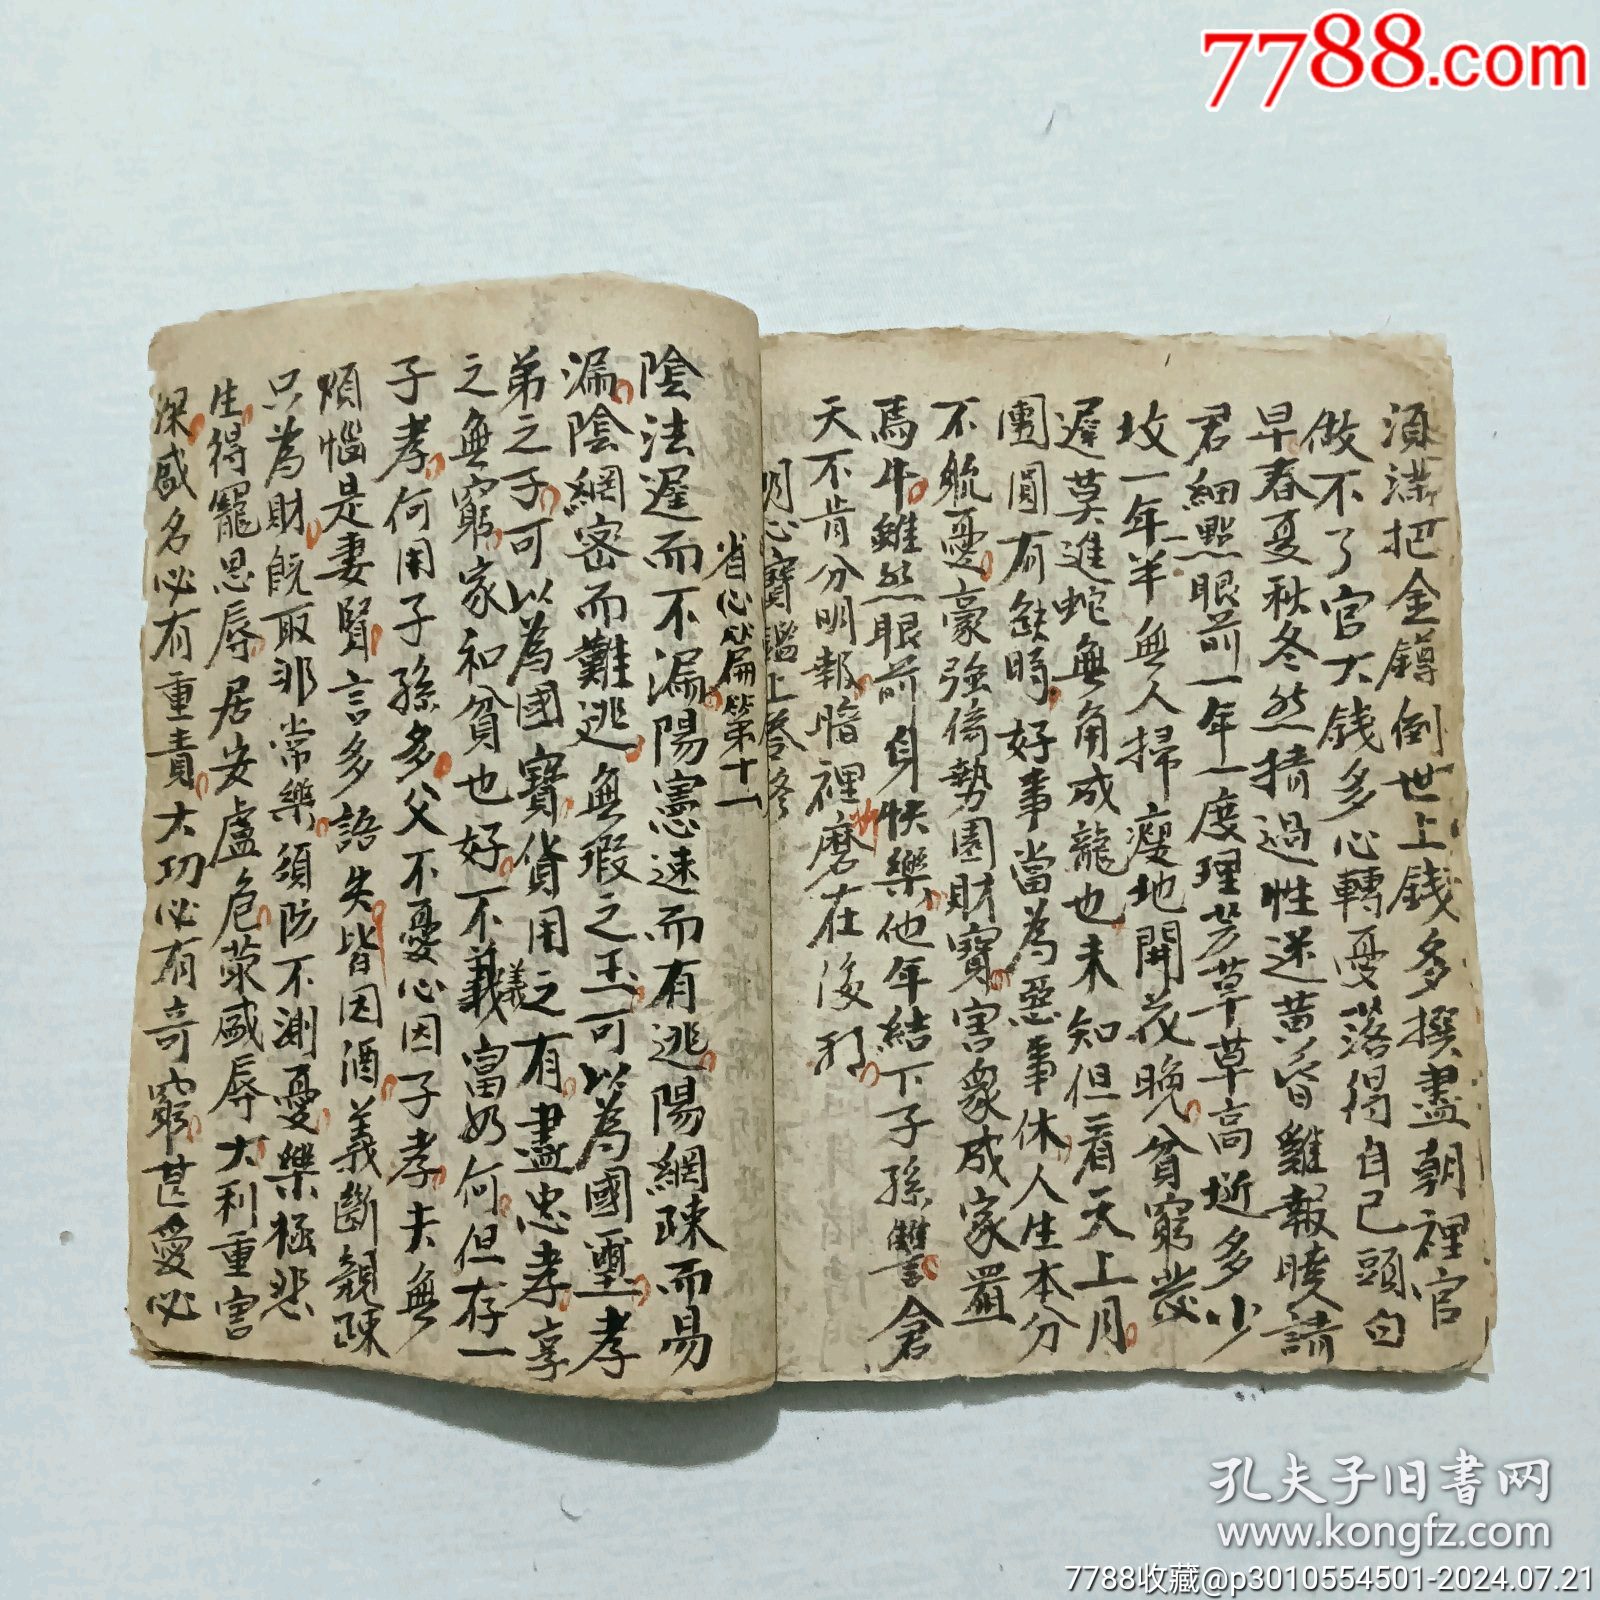 7788.com
須滿把金鐏倒世上錢多撰盡朝裡官
做不了官大錢多心轉憂落得自己頭白
早春夏秋冬然猜過性迷黃昏雞報曉請
君細點眼前一年一度理芳草草高近多少
坟一年半無人掃瘦地開花晚貧窮發
遲莫進蛇無角成龍也未知但看天上月
團圓有缺時好事當為惡事休人生本分
不觥憂豪強倚勢圖財寶害衆成家置
馬牛雖然眼前身快樂他年結下子孫讐倉
天不肯分明報暗裡磨在後
明心寶鑑上卷終
省心篇第十一
陰法遲而不漏陽憲速而有逃陽網疎而易
漏陰網密而難逃無瑕之玉可以為國璽孝
弟之子可以為國寶寶貨用之有盡忠孝享
之無窮家和貧也好不義富奶何但存一
子孝何用子孫多父不憂心因子孝夫無
煩惱是妻賢言多語失皆因酒義斷親疎
只為財既取非常樂須防不測憂樂極悲
生得寵思辱居安盧危榮盛辱大利重害
深盛名必有重責大功必有奇窮甚愛必
孔夫子旧书网
www.kongfz.com
7788收藏@p3010554501-2024.07.21